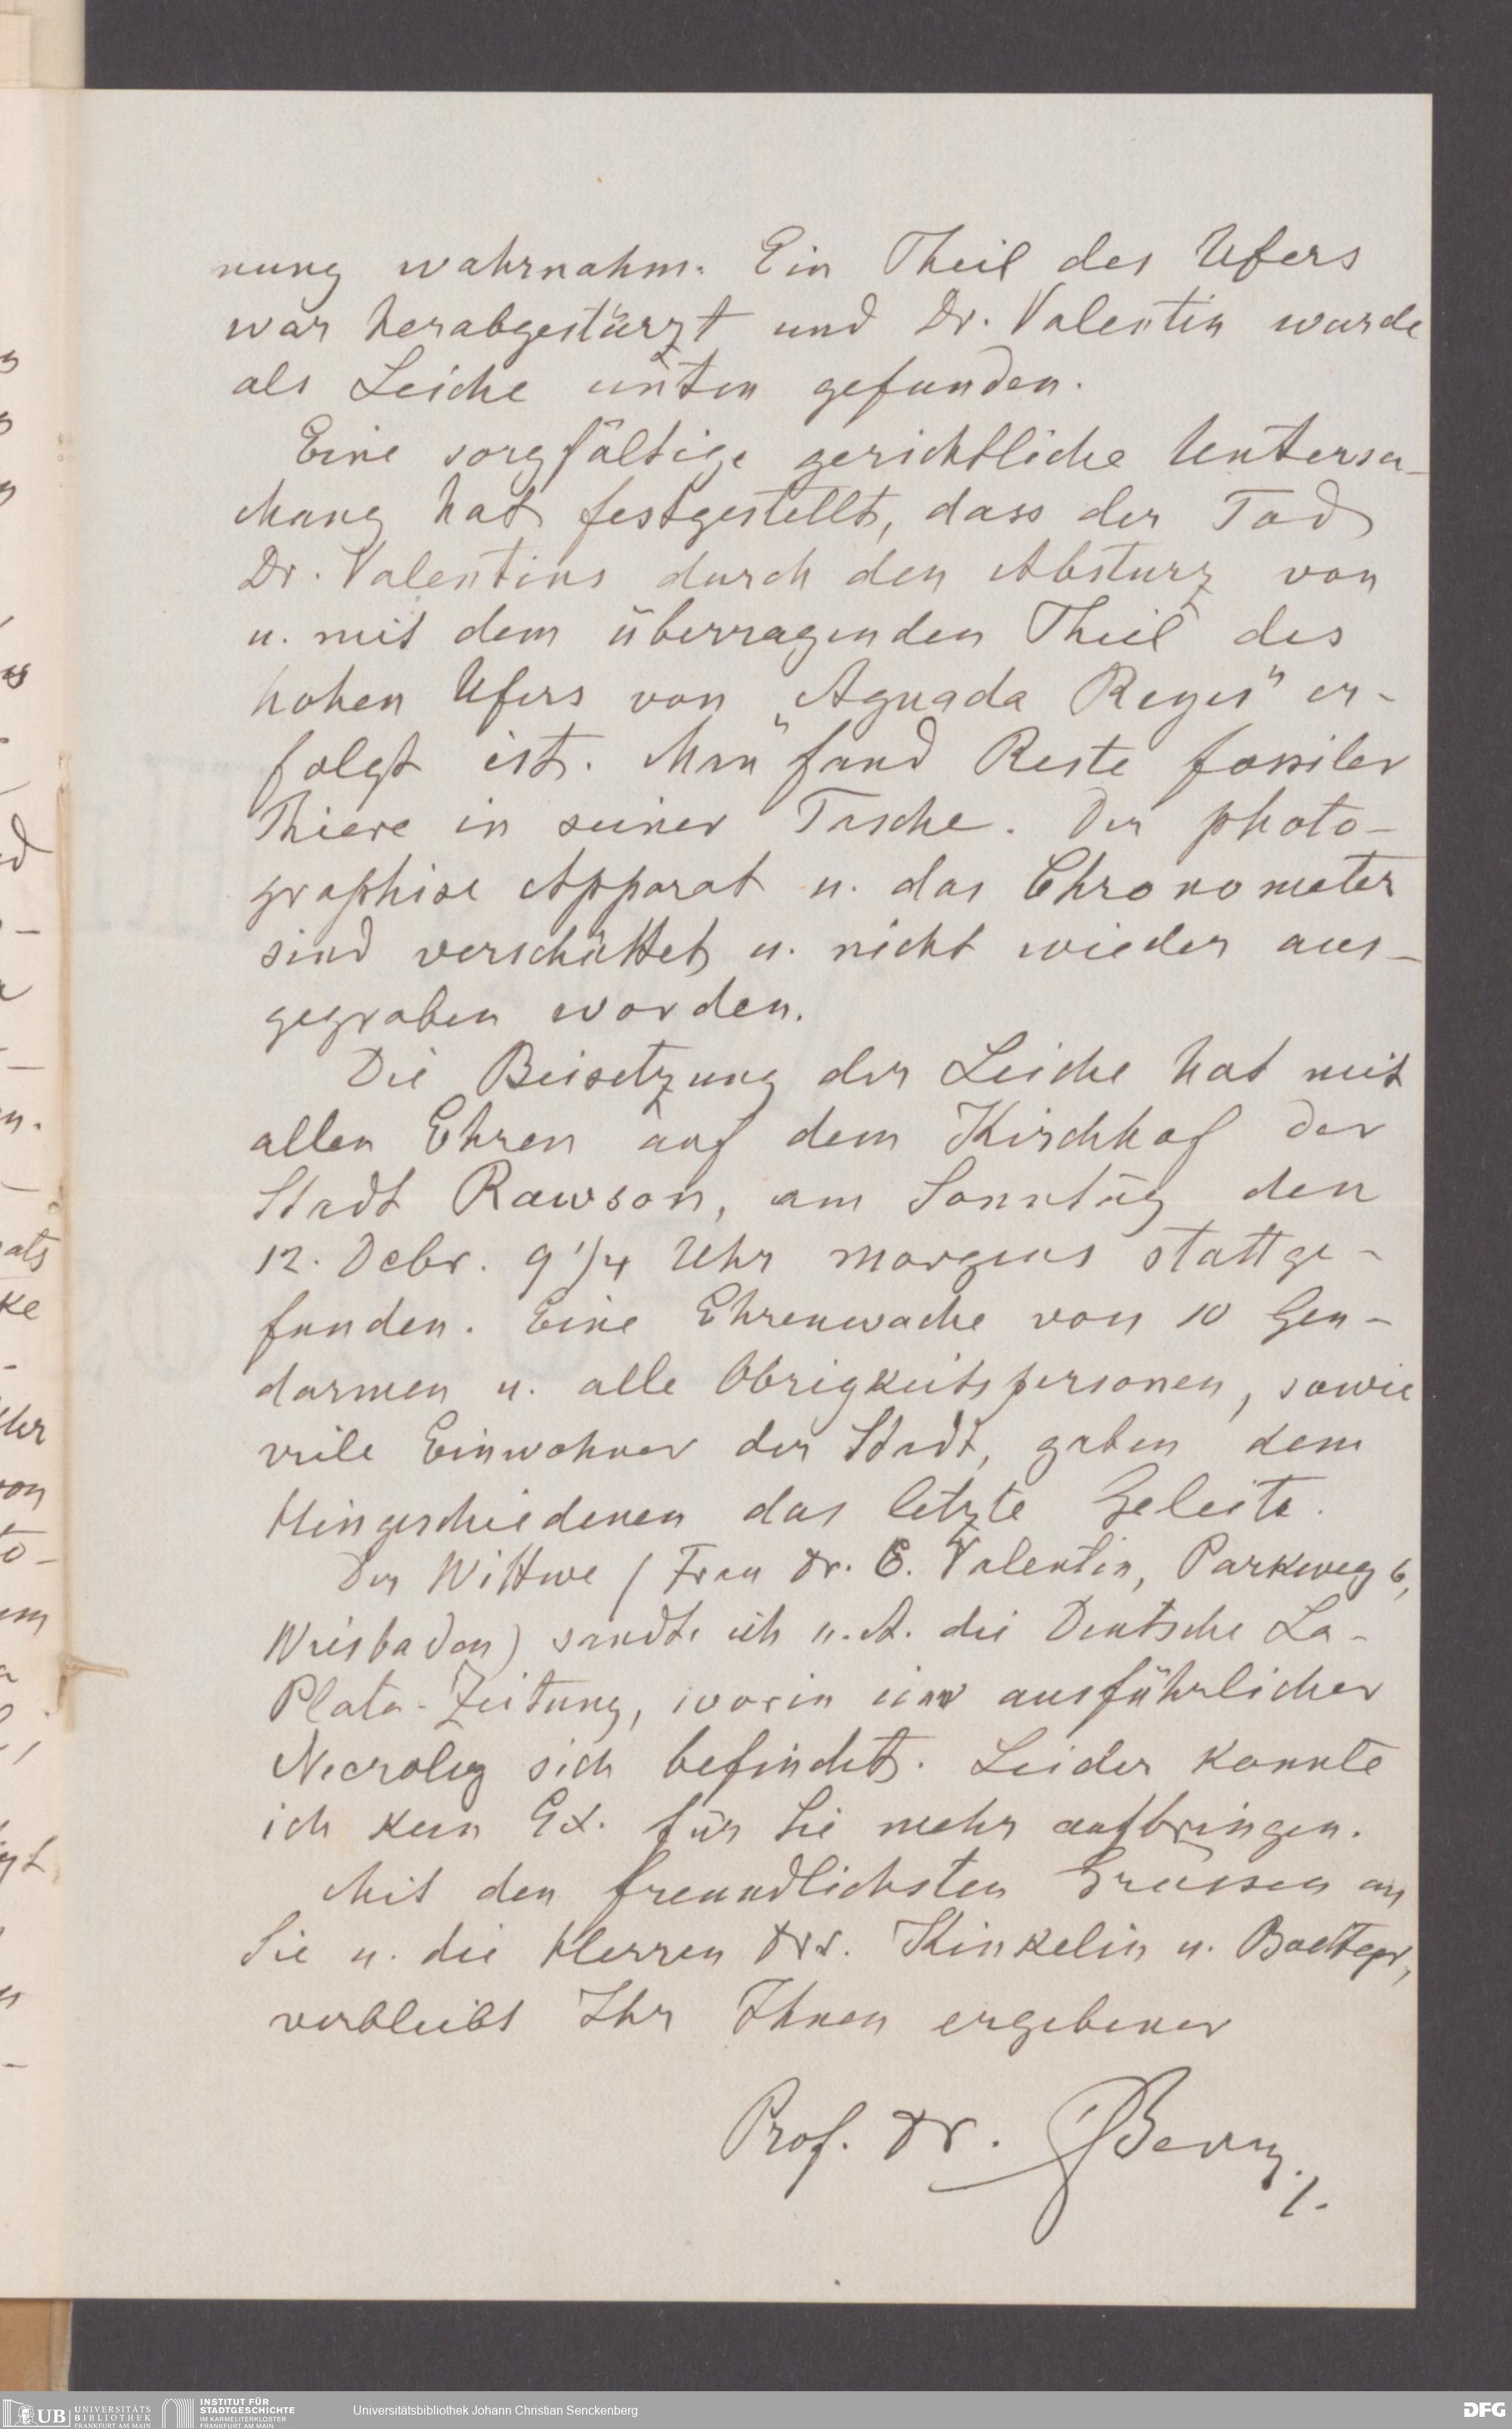 nung wahrnahm. Ein Theil des Ufers
war herabgestürzt und Dr. Valentin wurde
als Leiche unten gefunden.
Eine sorgfältige gerichtliche Untersu-
chung hat festgestellt, dass der Tod
Dr. Valentins durch den Absturz von
u. mit dem überragenden Theil des
hohen Ufers von „Aguada Reyes" er-
folgt ist. Man fand Reste fossiler
Thiere in seiner Tasche. Der photo-
graphise Apparat u. das Chronometer
sind verschüttet u. nicht wieder aus-
gegraben worden.
Die Beisetzung der Leiche hat mit
allen Ehren auf dem Kirchhof der
Stadt Rawson, am Sonntag den
12. Debr. 9 1/4 Uhr morgens stattge-
funden. Eine Ehrenwache von 10 Gen-
darmen u. alle Obrigkeitspersonen, sowie
viele Einwohner der Stadt, gaben dem
Hingeschiedenen das letzte Geleite.
Der Wittwe (Frau Dr. E. Valentin, Parkweg 6,
Wiesbaden) sandte ich u. A. die Deutsche La-
Plata-Zeitung, worin ein ausführlicher
Necrolog sich befindet. Leider konnte
ich kein Ex. für Sie mehr aufbringen.
Mit den freundlichsten Grüssen an
Sie u. die Herren Drs. Kinkelin u. Boettger,
verbleibt Ihr Ihnen ergebener
Prof. Dr. Berg
UB UNIVERSITÄTS
BIBLIOTHEK
FRANKFURT AM MAIN
INSTITUT FÜR
STADTGESCHICHTE
IM KARMELITERKLOSTER
FRANKFURT AM MAIN
Universitätsbibliothek Johann Christian Senckenberg
DFG